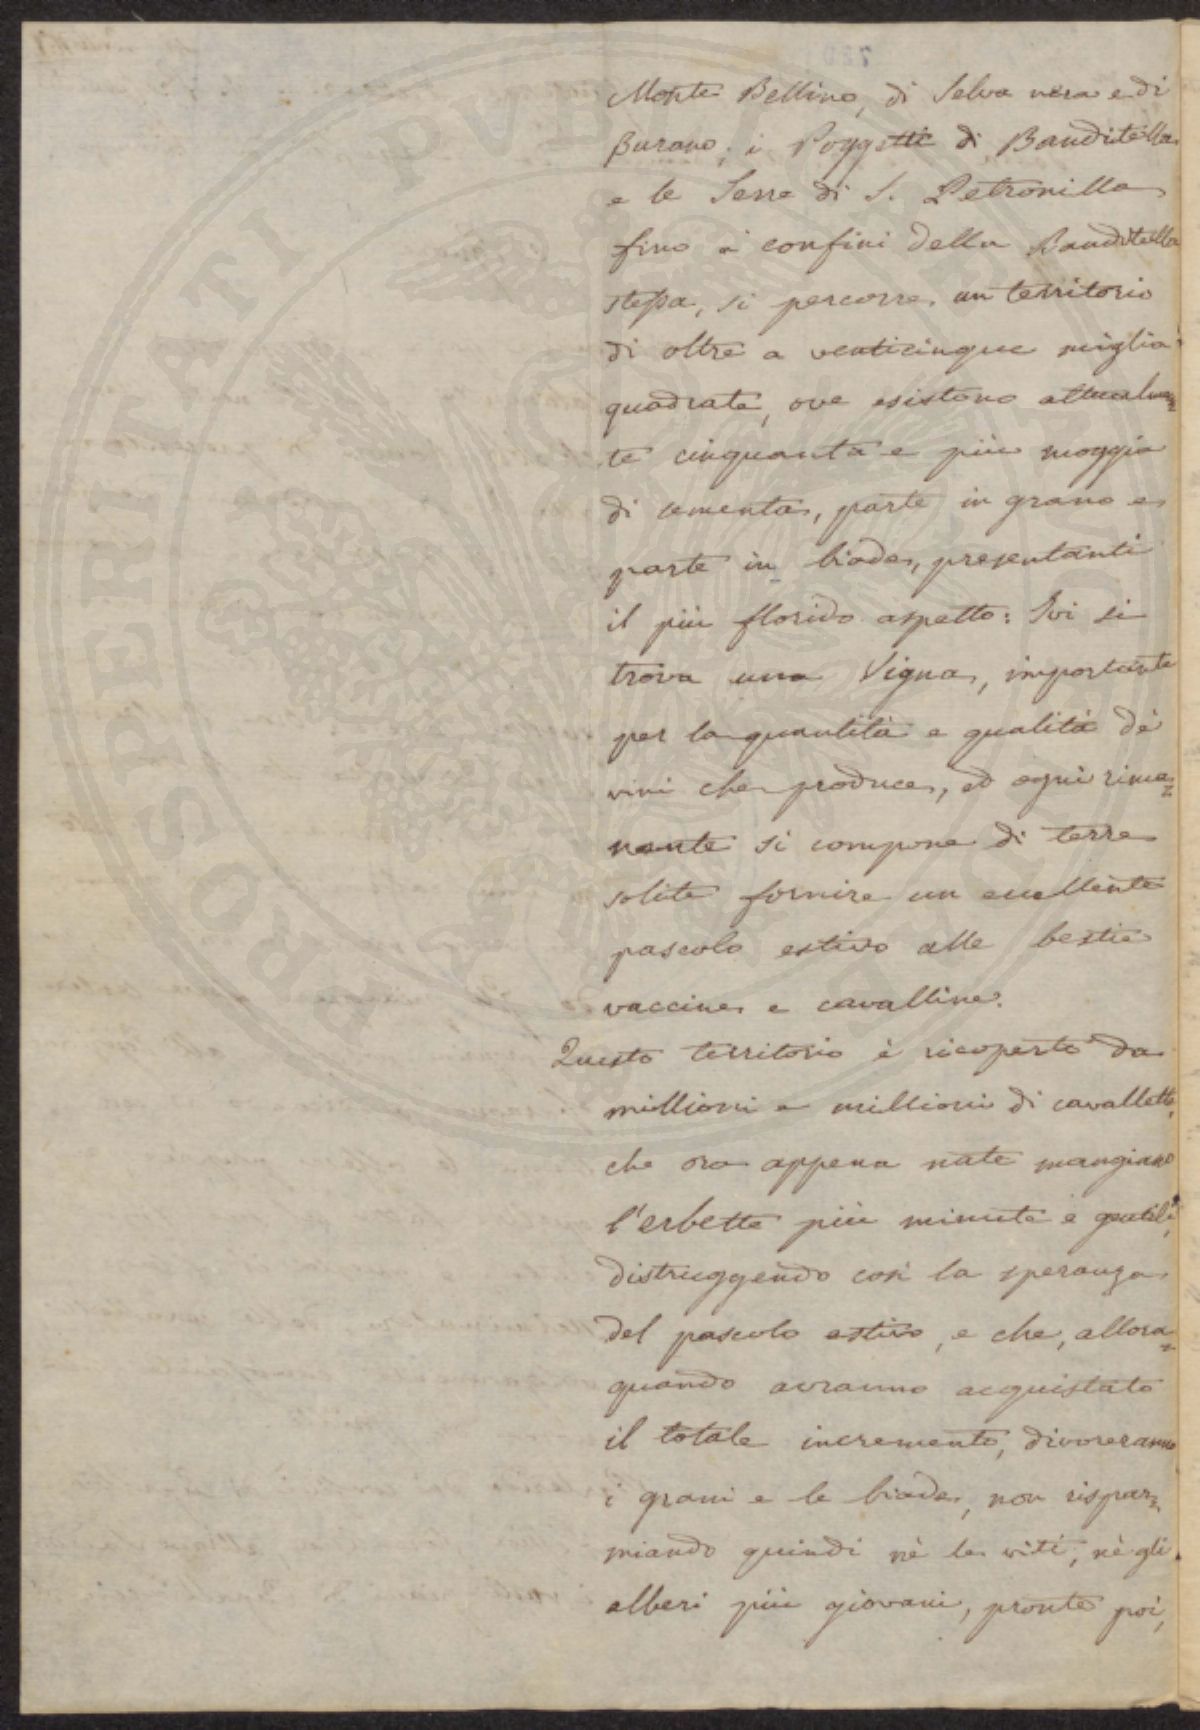 Monte Bellino, di Selva nera e di
Burano, i Poggetti di Banditella
e le Serre di S. Petronilla
fino a' confini della Banditella
stessa, si percorre, un territorio
di oltre a venticinque miglia
quadrate, ove esistono attualmen
te cinquanta e più moggia
di cementa, parte in grano e
parte in biade, presentanti
il più florido aspetto: Ivi si
trova una Vigna, importante
per la quantità e qualità de'
vini che produce, ed ogni rima=
nente si compone di terre
solite fornire un eccellente
pascolo estivo alle bestie
vaccine e cavalline.
Questo territorio è ricoperto da
millioni e millioni di cavallette,
che ora appena nate mangiano
l'erbette più minute e gentili,
distruggendo così la speranza
del pascolo estivo, e che, allora=
quando avranno acquistato
il totale incremento, divoreranno
i grani e le biade, non rispar=
miando quindi nè le viti, nè gli
alberi più giovani, pronte poi,
PROSPERITATI PVBLICAE